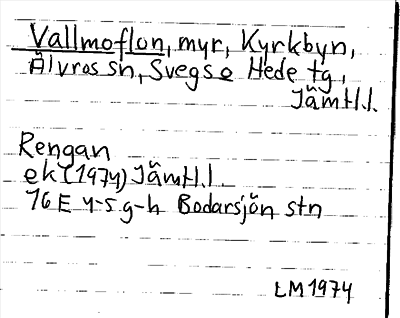 Vallmoflon, myr, Kyrkbyn,
Älvros sn, Svegs o Hede tg,
Jämtl.l.
Rengan
ek (1974) Jämtl.l
16 E 4-5 g-h Bodarsjön stn
LM 1974